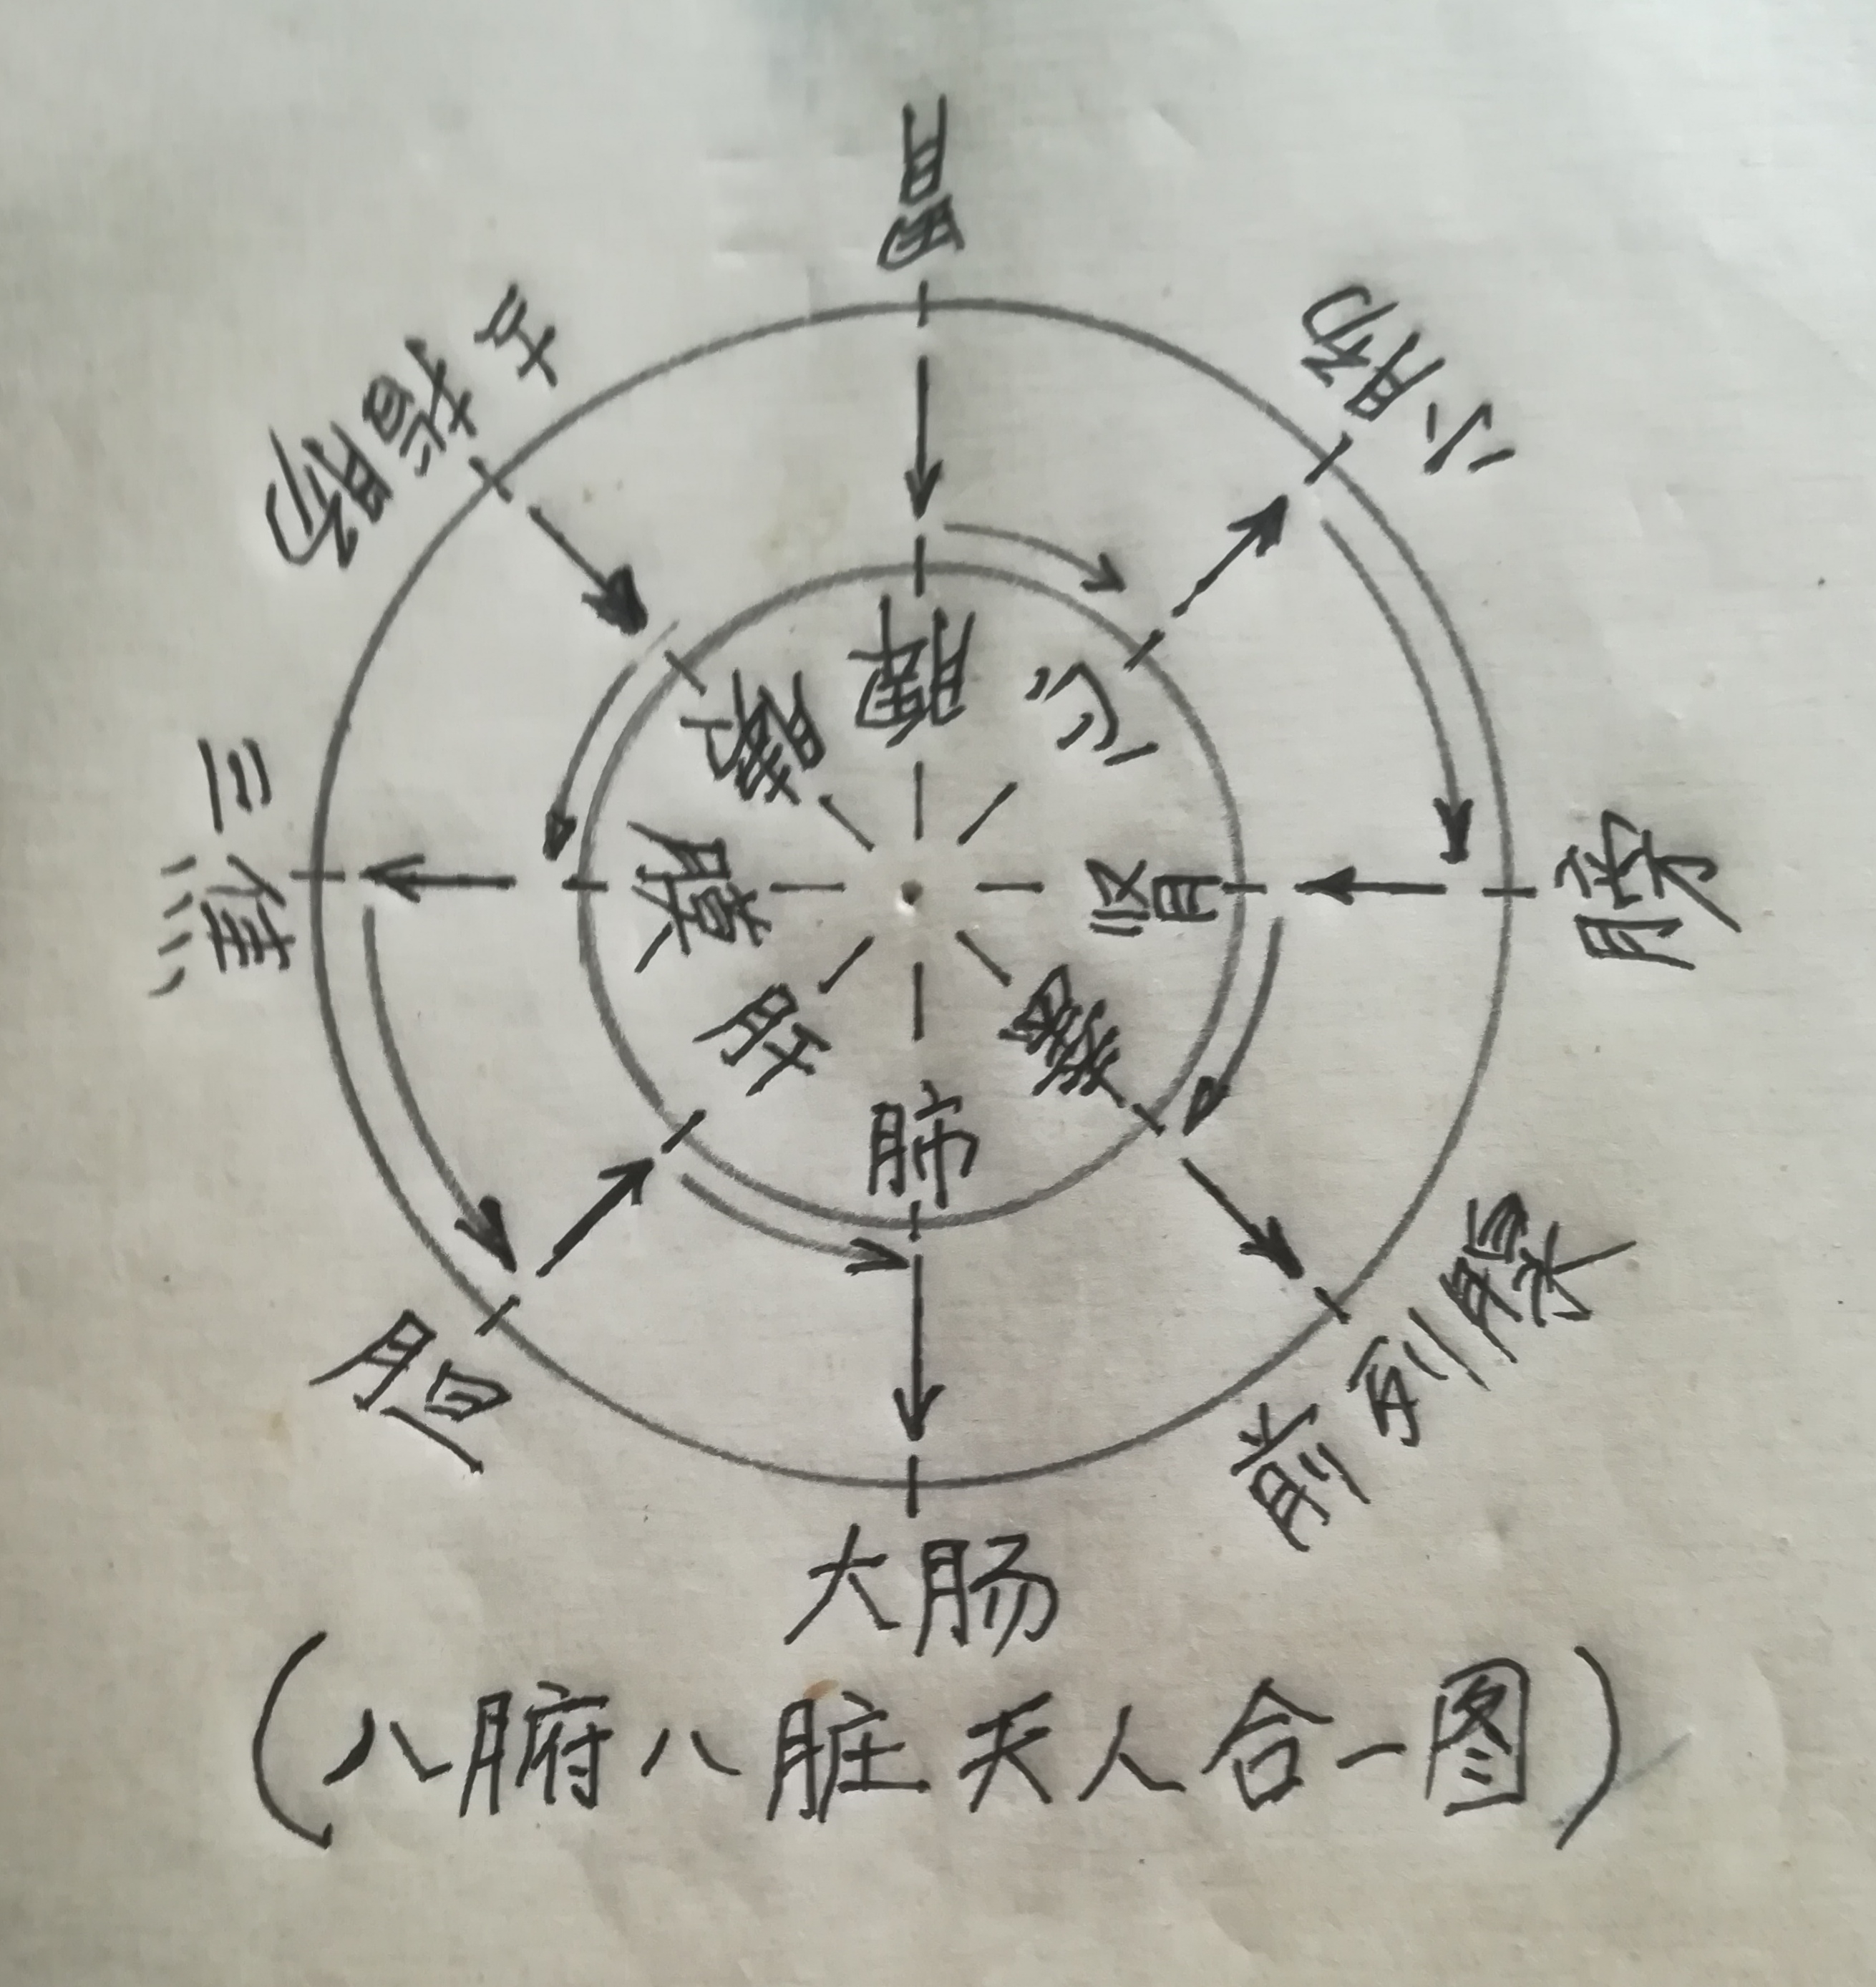 胃
小肠
膀
前列腺
大肠
胆
三焦
十二指肠
脾
心
肾
睾
肺
肝
膜
(八腑八脏天人合一图)